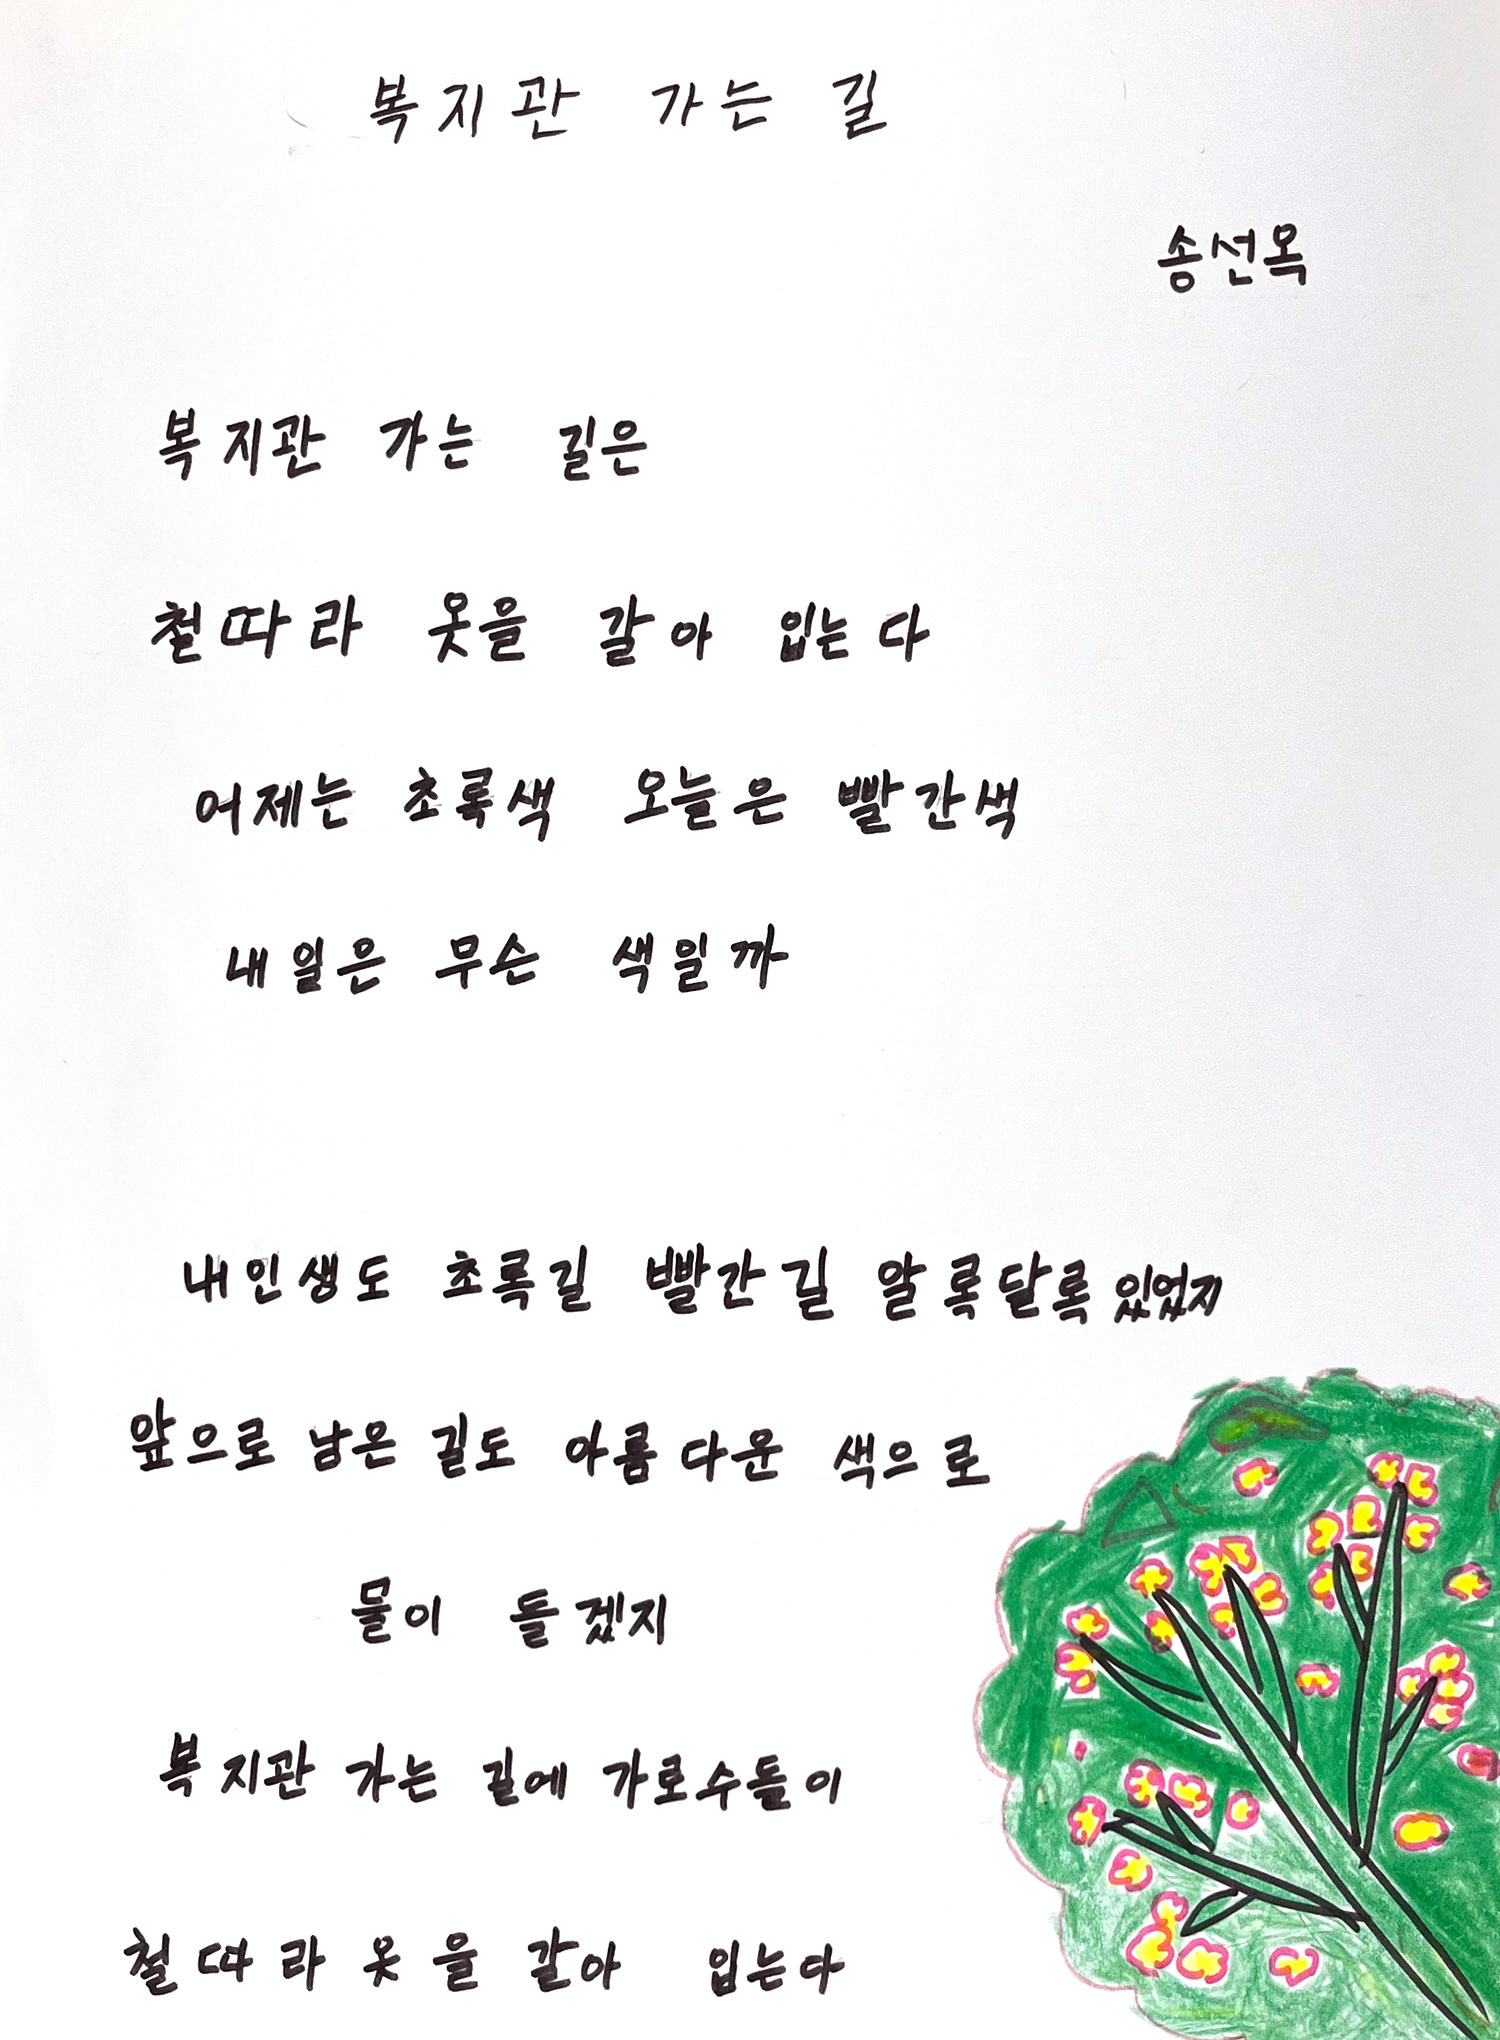 복지관 가는 길
송선옥
복지관 가는 길은
철따라 옷을 갈아 입는다
어제는 초록색 오늘은 빨간색
내일은 무슨 색일까
내인생도 초록길 빨간길 알록달록 있었지
앞으로 남은 길도 아름다운 색으로
물이 들겠지
복지관 가는 길에 가로수들이
철따라 옷을 갈아 입는다